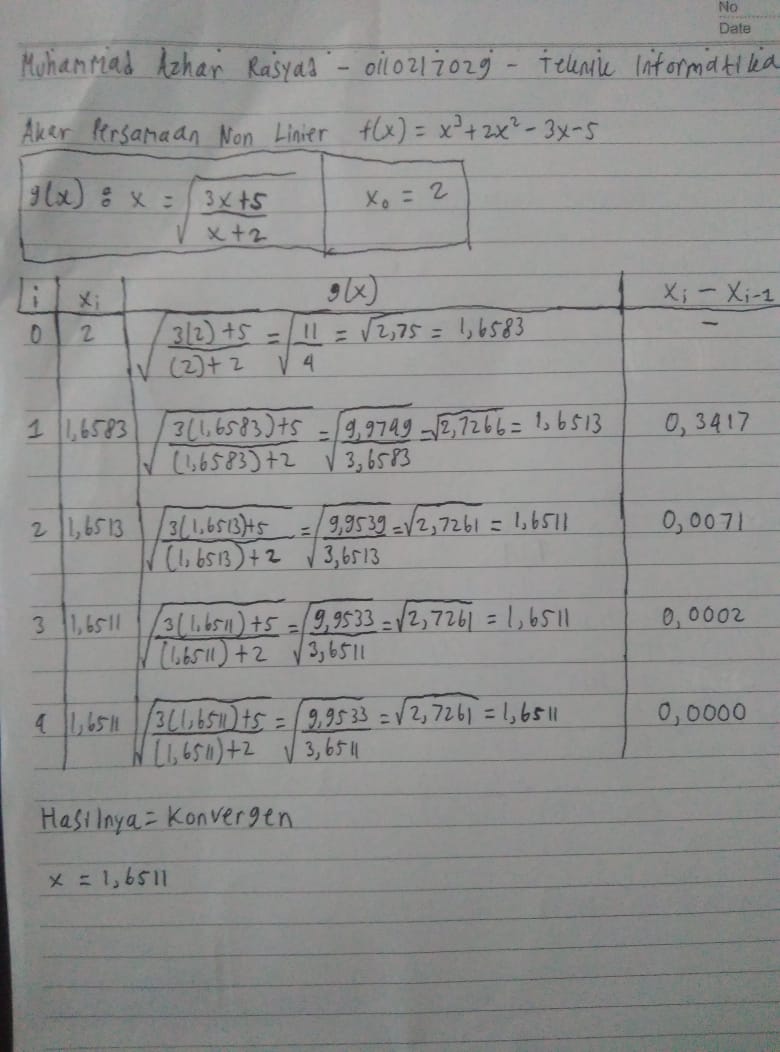 No
Date
Muhammad Azhar Rasyad - 0110217029 - Teknik Informatika
Akar Persamaan Non Linier f(x) = x³ + 2x² - 3x - 5
g(x) : x = √((3x+5)/(x+2)) x₀ = 2
i xᵢ g(x) xᵢ - xᵢ₋₁
0 2 √((3(2)+5)/((2)+2)) = √(11/4) = √2,75 = 1,6583 -
1 1,6583 √((3(1,6583)+5)/((1,6583)+2)) = √(9,9749/3,6583) = √2,7266 = 1,6513 0,3417
2 1,6513 √((3(1,6513)+5)/((1,6513)+2)) = √(9,9539/3,6513) = √2,7261 = 1,6511 0,0071
3 1,6511 √((3(1,6511)+5)/((1,6511)+2)) = √(9,9533/3,6511) = √2,7261 = 1,6511 0,0002
4 1,6511 √((3(1,6511)+5)/((1,6511)+2)) = √(9,9533/3,6511) = √2,7261 = 1,6511 0,0000
Hasilnya = Konvergen
x = 1,6511